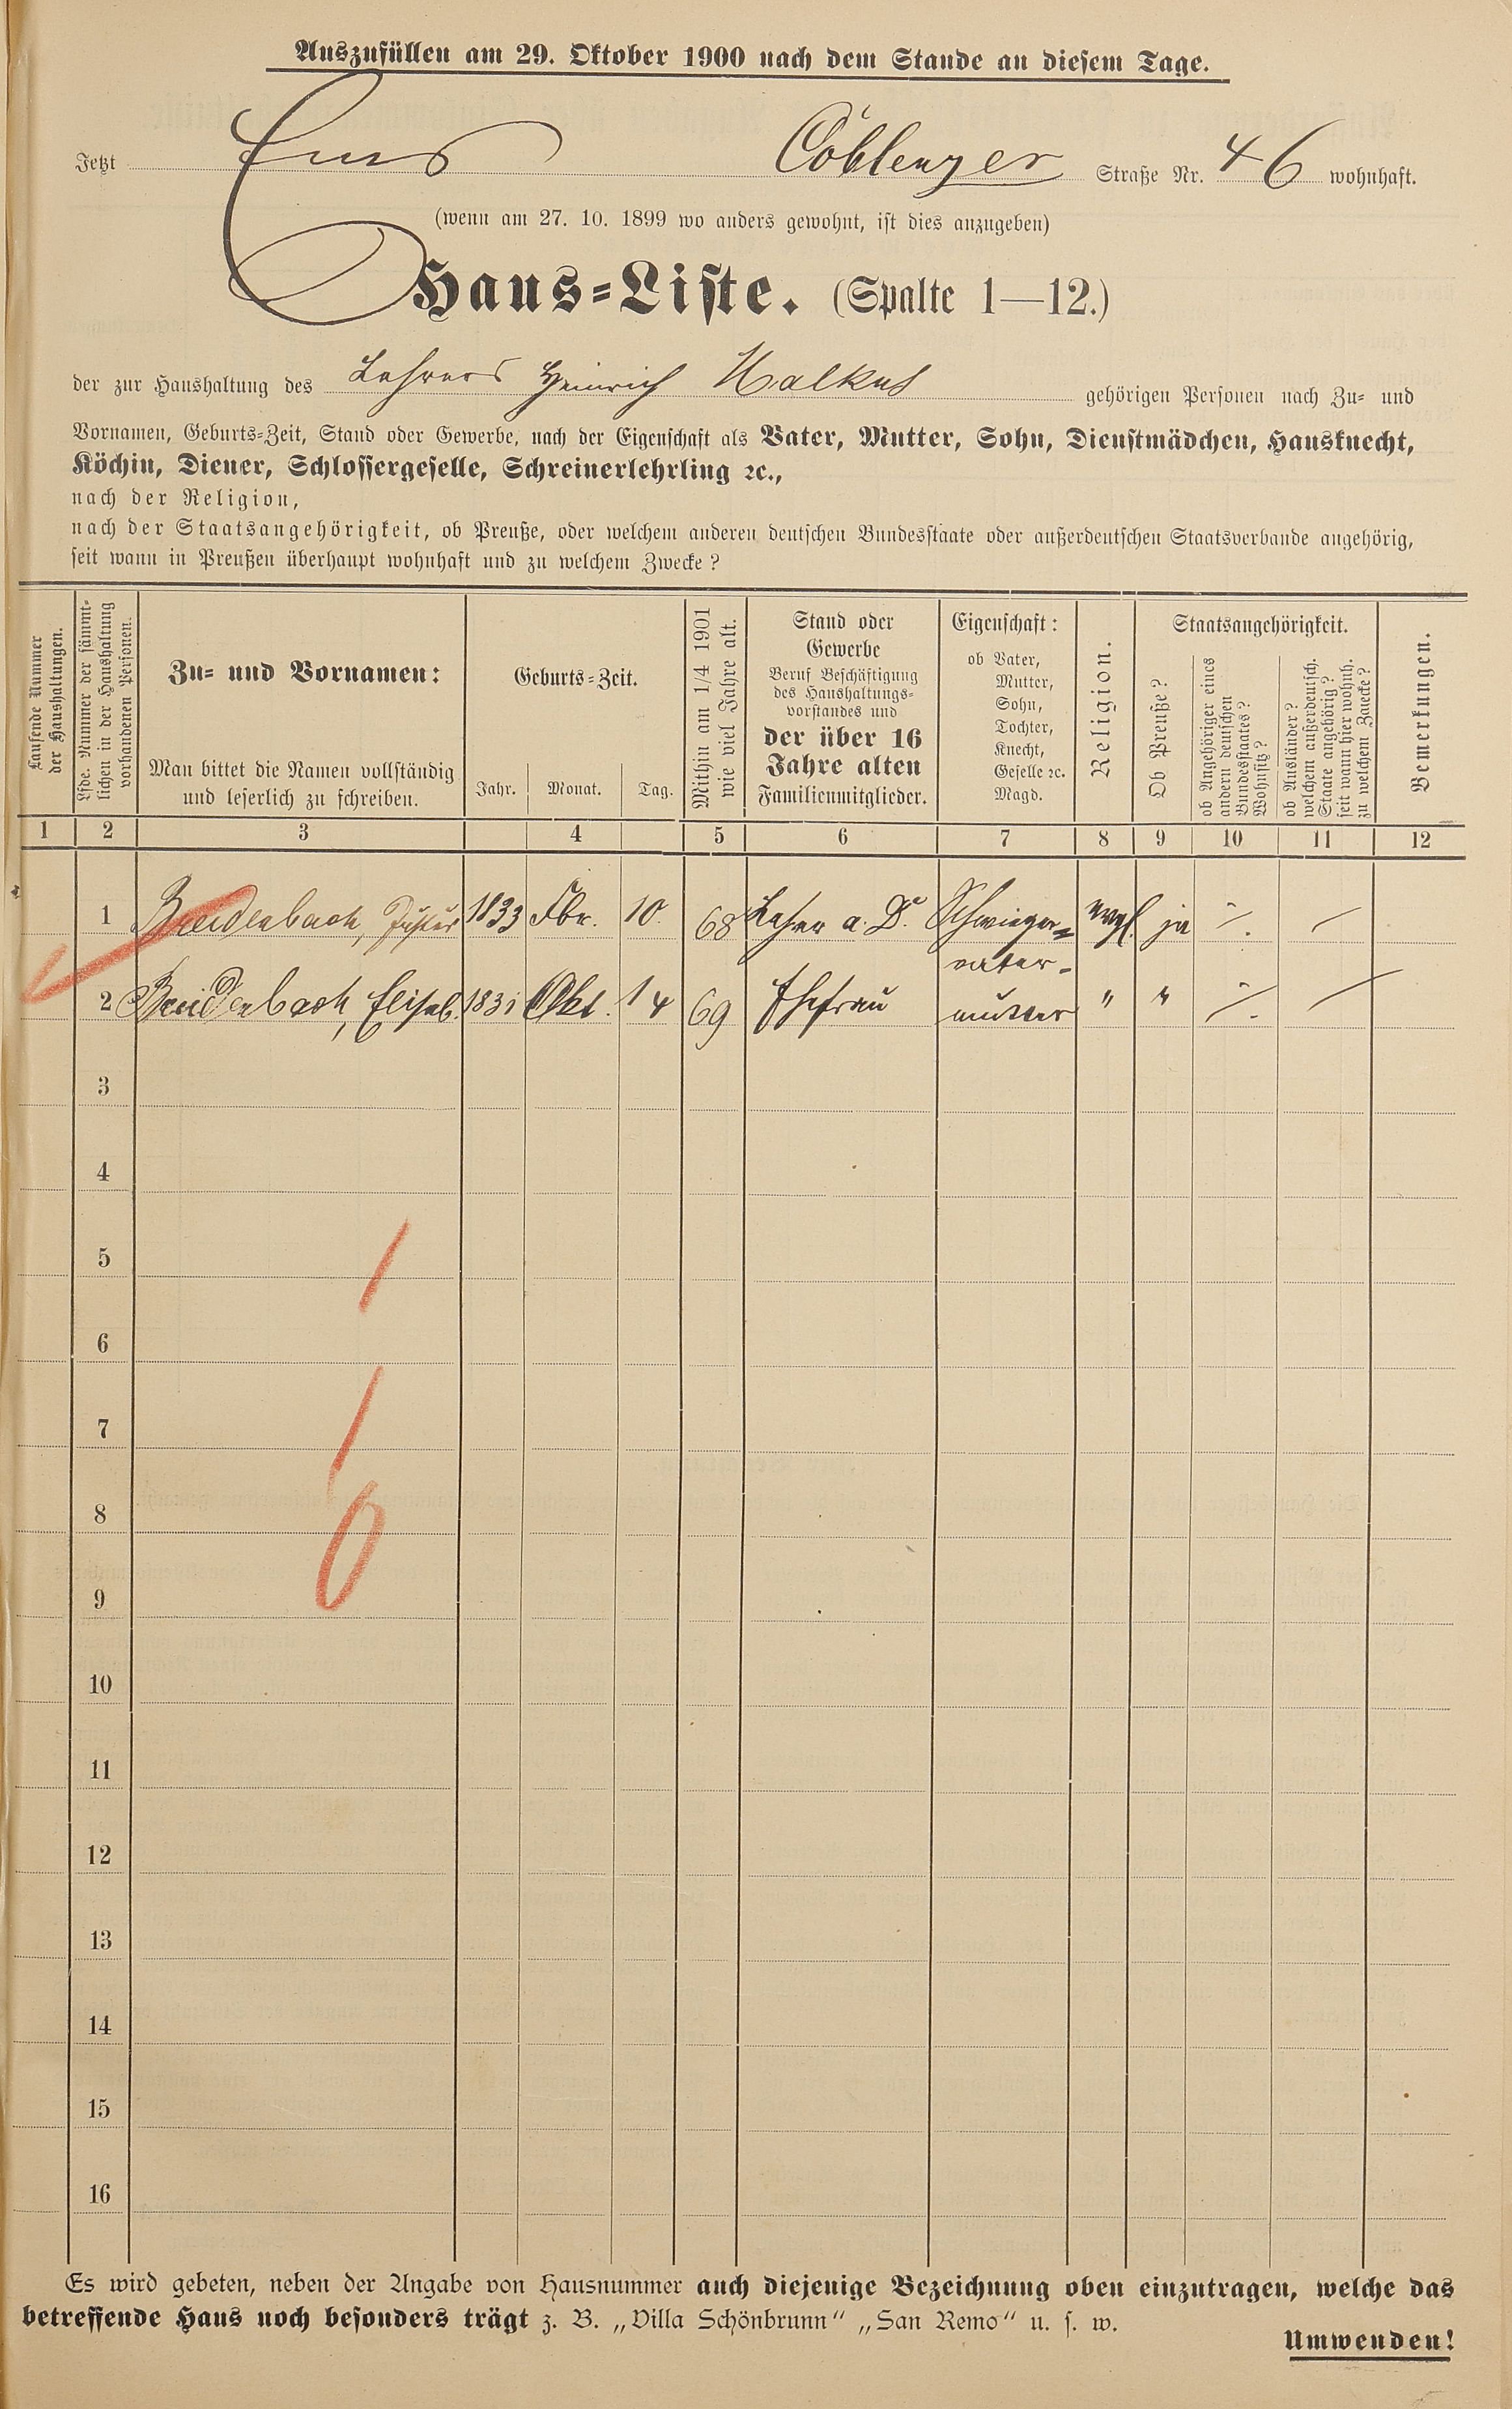 Auszufüllen am 29. Oktober 1900 nach dem Stande an diesem Tage.
Jetzt Ems Coblenzer Straße Nr. 46 wohnhaft.
(wenn am 27. 10. 1899 wo anders gewohnt, ist dies anzugeben)
Haus-Liste. (Spalte 1—12.)
der zur Haushaltung des Lehrers Heinrich Malkus gehörigen Personen nach Zu- und
Vornamen, Geburts-Zeit, Stand oder Gewerbe, nach der Eigenschaft als Vater, Mutter, Sohn, Dienstmädchen, Hausknecht,
Köchin, Diener, Schlossergeselle, Schreinerlehrling ꝛc.,
nach der Religion,
nach der Staatsangehörigkeit, ob Preuße, oder welchem anderen deutschen Bundesstaate oder außerdeutschen Staatsverbande angehörig,
seit wann in Preußen überhaupt wohnhaft und zu welchem Zwecke?
Laufende Nummer
der Haushaltungen.
Lfde. Nummer der sämmt-
lichen in der Haushaltung
vorhandenen Personen.
Zu- und Vornamen:
Man bittet die Namen vollständig
und leserlich zu schreiben.
Geburts-Zeit.
Jahr. Monat. Tag.
Mithin am 1/4 1901
wie viel Jahre alt.
Stand oder
Gewerbe
Beruf Beschäftigung
des Haushaltungs-
vorstandes und
der über 16
Jahre alten
Familienmitglieder.
Eigenschaft:
ob Vater,
Mutter,
Sohn,
Tochter,
Knecht,
Geselle ꝛc.
Magd.
Religion.
Staatsangehörigkeit.
Ob Preuße?
ob Angehöriger eines
andern deutschen
Bundesstaates?
Wohnsitz?
ob Ausländer?
welchem außerdeutsch.
Staate angehörig?
seit wann hier wohnh.
zu welchem Zwecke?
Bemerkungen.
1 2 3 4 5 6 7 8 9 10 11 12
1 Breidenbach, 1833 Fbr. 10. 68 Lehrer a. D. Schwieger-
vater-
evgl. ja ./. /
2 Breidenbach, Elisab. 1831 Okt. 14 69 Ehefrau mutter " " ./. /
3
4
5
6
7
8
9
10
11
12
13
14
15
16
Es wird gebeten, neben der Angabe von Hausnummer auch diejenige Bezeichnung oben einzutragen, welche das
betreffende Haus noch besonders trägt z. B. „Villa Schönbrunn“ „San Remo“ u. s. w.
Umwenden!